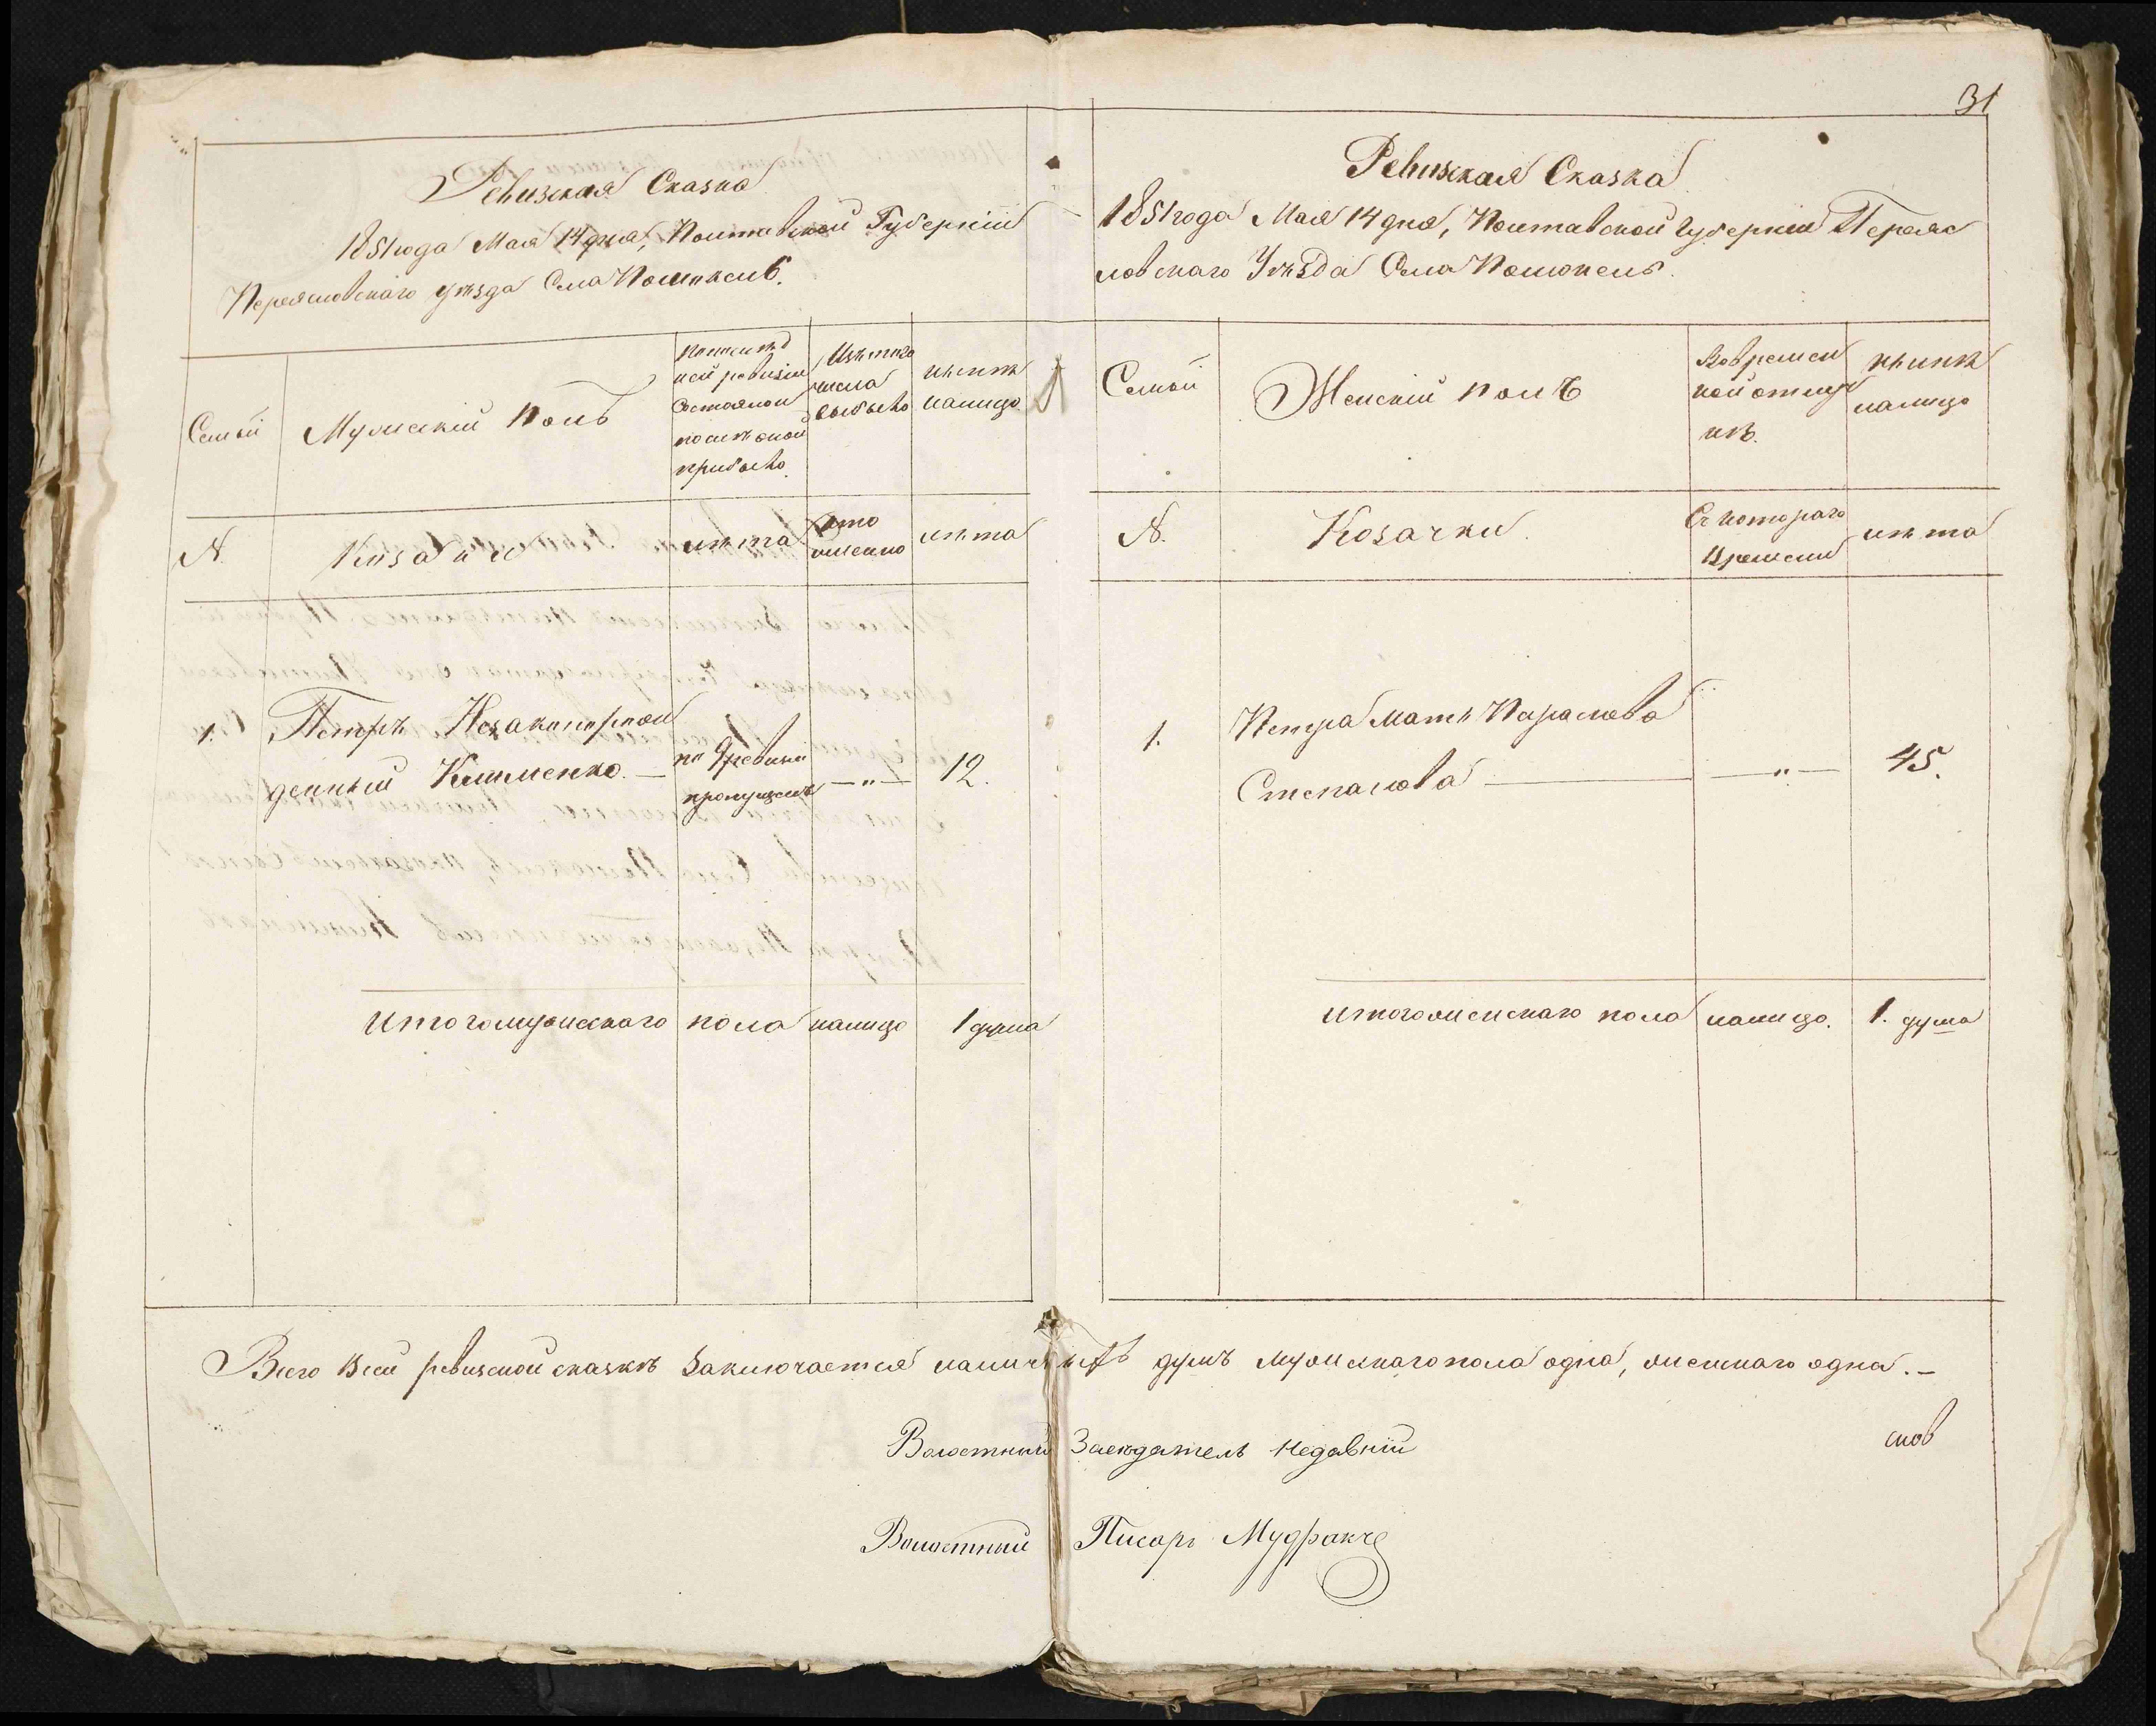 31
Ревизская Сказка
1851 года Мая 14 дня, Полтавской Губерніи
Переясловскаго уѣзда Села Помоклей.
Семьи
Мужескій полъ
По послѣд
ней ревизіи
Состояло и
послѣ оной
прибыло.
Изъ того
числа
выбыло
нынѣ
налицо
№
Козаки
лѣта
лѣта
1.
Петръ Незаконорож
денный Клименко. —
по 9 ревизіи
пропущенъ
— " —
12.
Итого мужескаго пола налицо 1 душа
Ревизская Сказка
1851 года Мая 14 дня, Полтавской Губерніи Переяс
ловскаго Уѣзда Села Помоклей.
Семьи
Женскій полъ
Во времен
ной отлуч
кѣ.
нынѣ
налицо
№.
Козачки.
Съ котораго
Времени
лѣта
1.
Петра Мать Параскова
Степанова —
— " —
45.
Итого женскаго пола налицо. 1. душа
Всего в сей ревизской сказкѣ Заключается душъ мужескаго пола одна, женскаго одна. –
Волостный Засѣдатель Недавній
Волостный Писарь